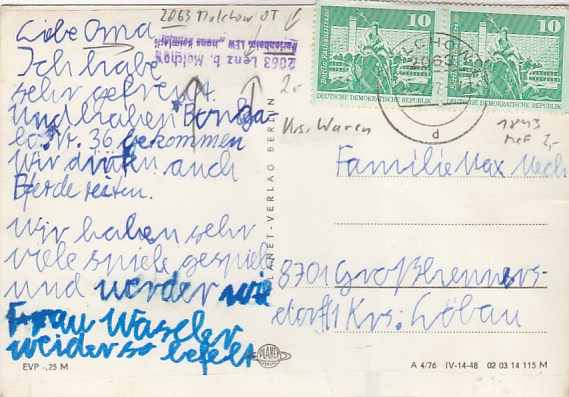 Liebe Oma.
Ich habe
sehr gefreut
und haben Bonba
los Nr. 36 bekommen
wir dürfen auch
Pferde reiten.
Wir haben sehr
viele spiele gespielt
und werder wie
Frau Waseler
weider so befelt
EVP -,25 M
2063 Malchow OT
2063 Lenz b. Malchow
Ferienheim LEW „Hans Beimler"
2.-
Krs. Waren
PLANET-VERLAG BERLIN
PLANET
10 10
DEUTSCHE DEMOKRATISCHE REPUBLIK DEUTSCHE DEMOKRATISCHE REPUBLIK
LCHOW
2063
d
1843
MeF 2,-
Familie Max
8701 Großhenners-
dorf Krs. Löbau
A 4/76 IV-14-48 02 03 14 115 M